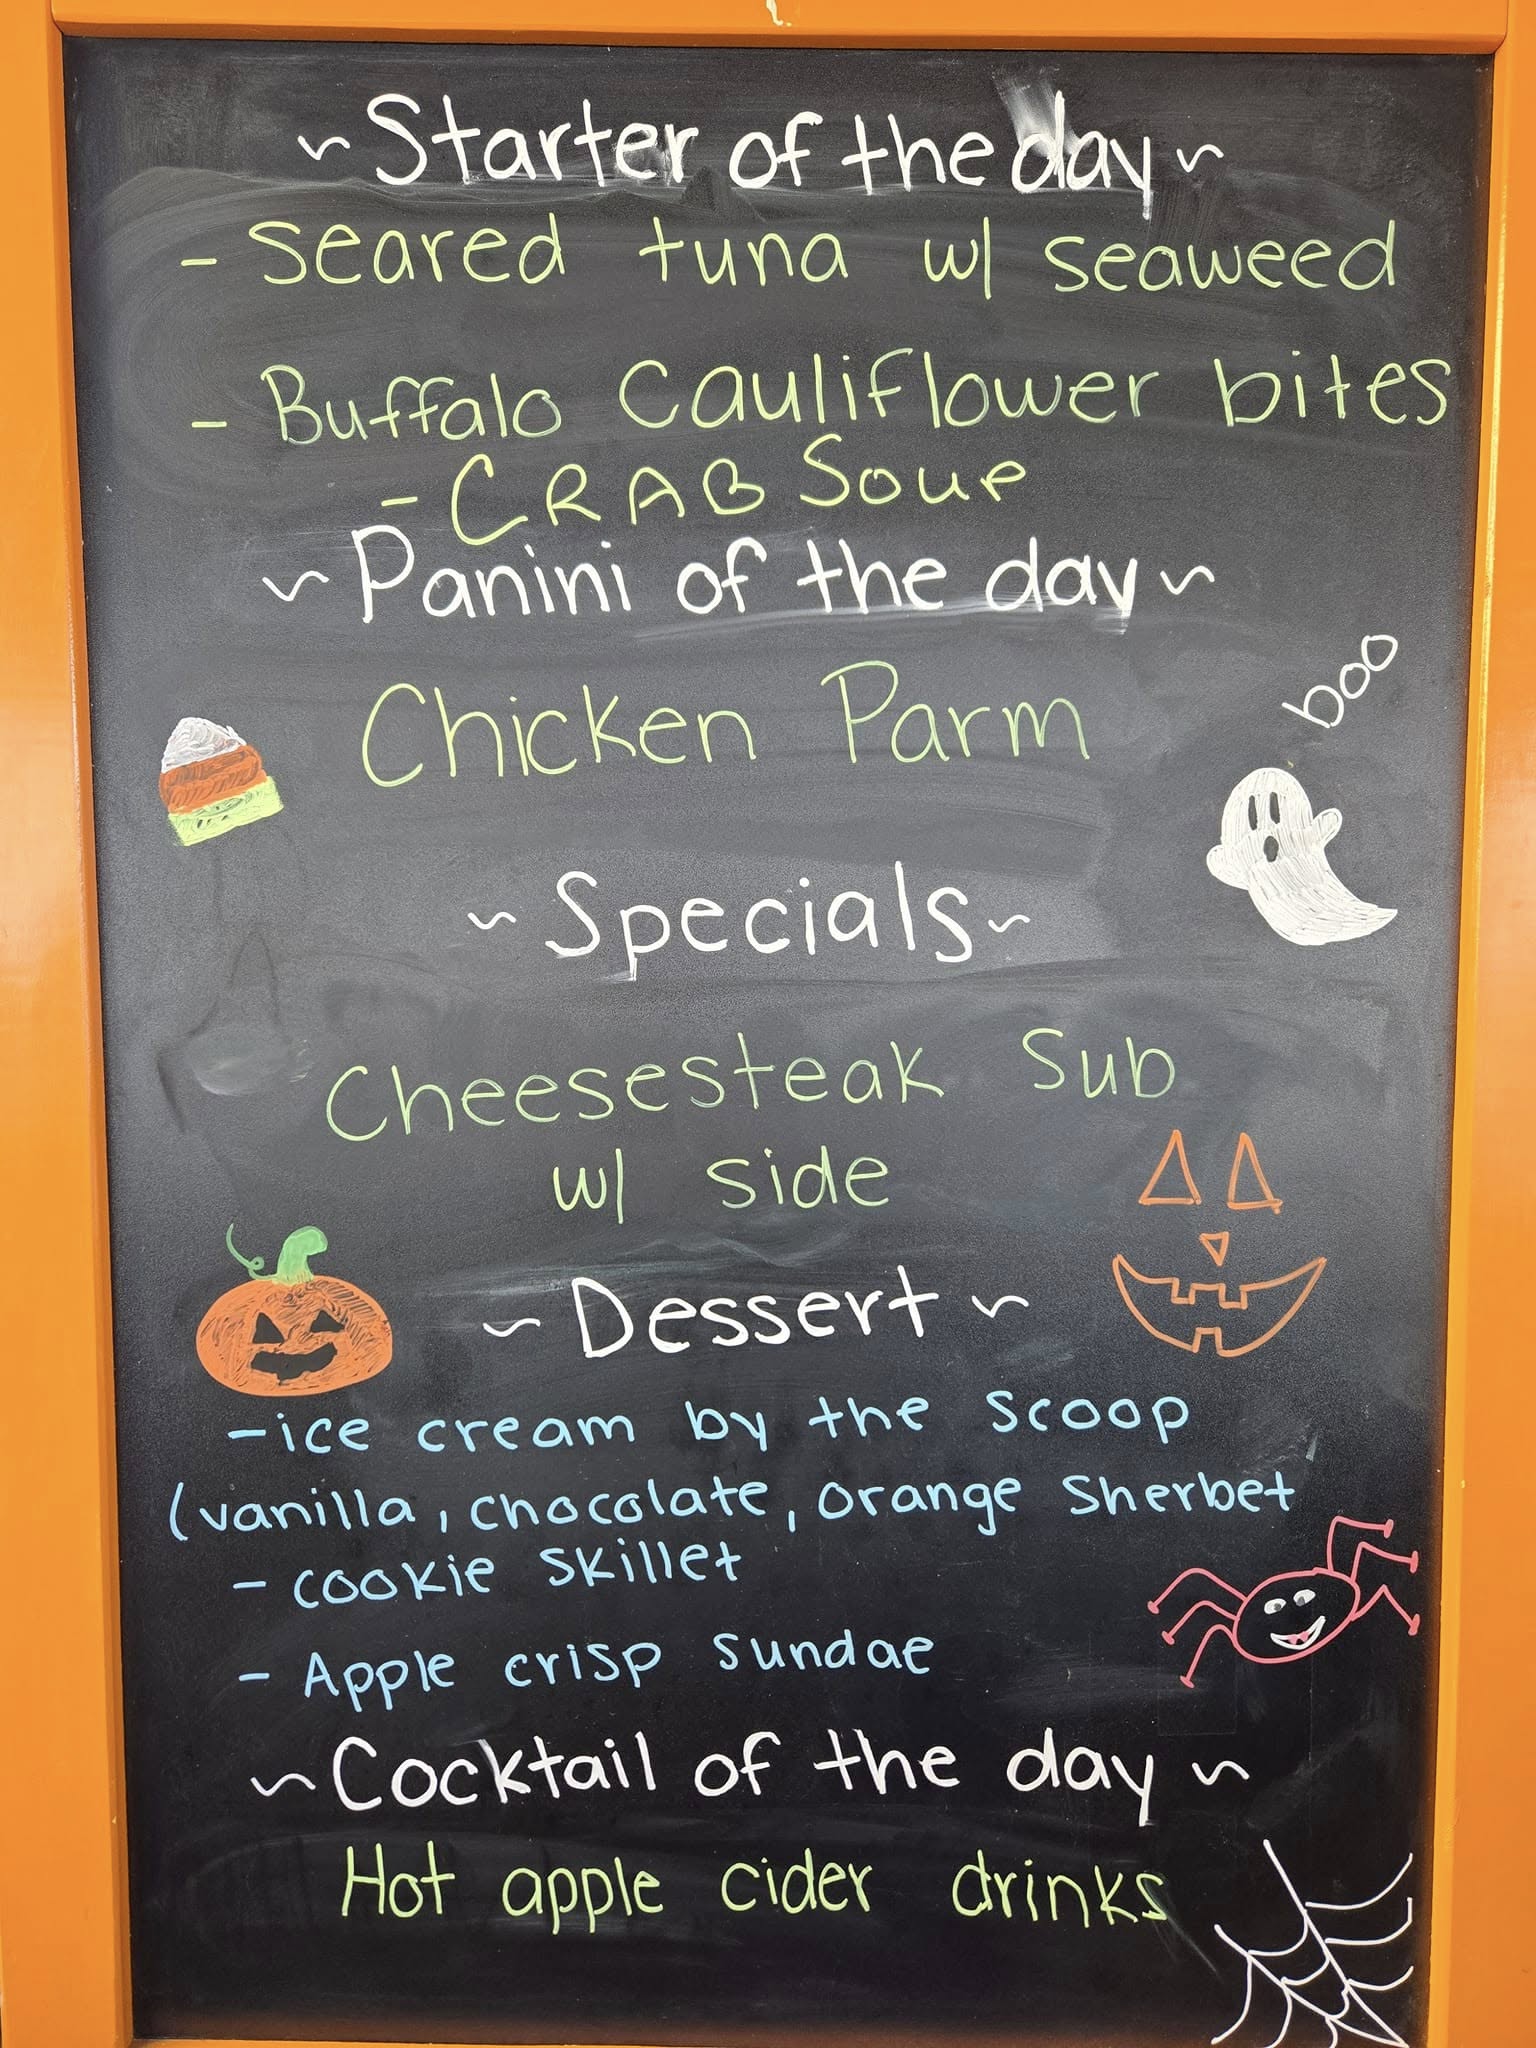 ~Starter of the day~
- seared tuna w/ seaweed
- Buffalo Cauliflower bites
- CRAB Soup
~Panini of the day~
boo
Chicken Parm
~Specials~
Cheesesteak Sub
w/ side
~Dessert~
-ice cream by the scoop
(vanilla, chocolate, orange sherbet
- cookie skillet
- Apple crisp sundae
~Cocktail of the day~
Hot apple cider drinks